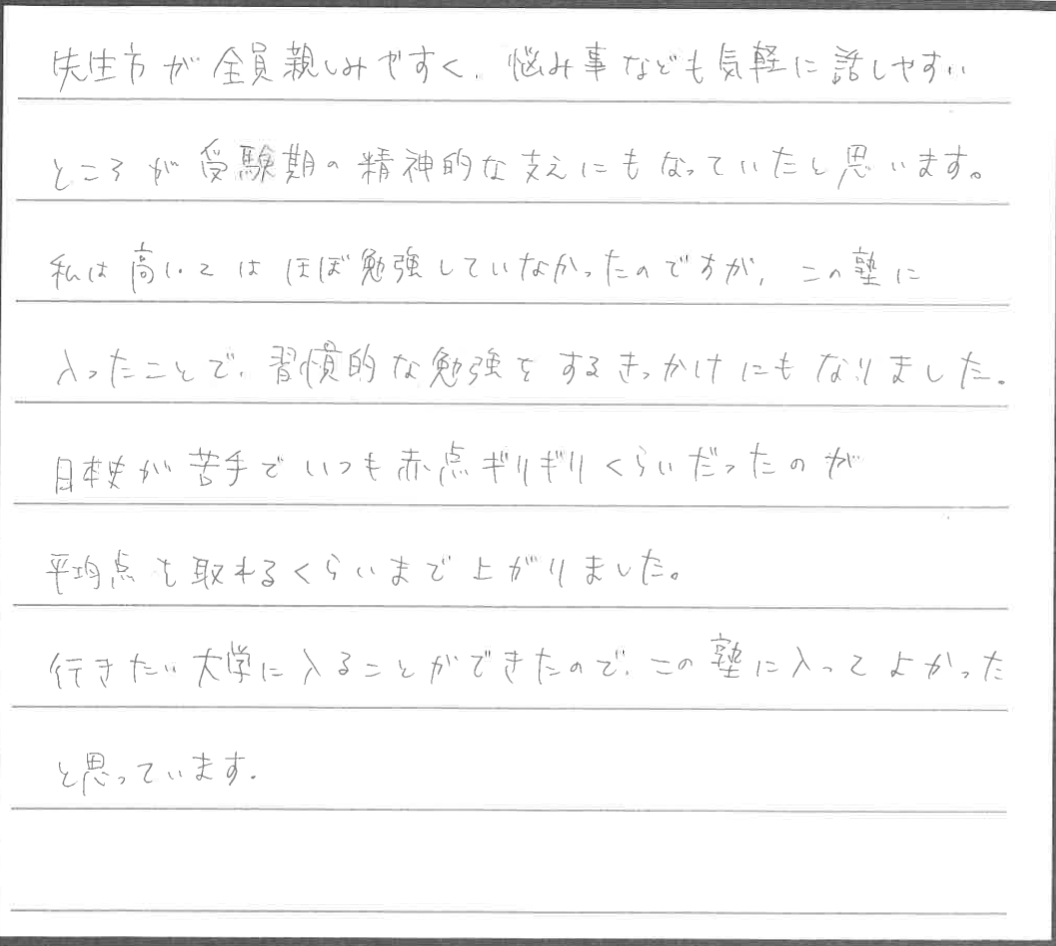 先生方が全員親しみやすく、悩み事なども気軽に話しやすい
ところが受験期の精神的な支えにもなっていたと思います。
私は高いとはほぼ勉強していなかったのですが、この塾に
入ったことで、習慣的な勉強をするきっかけにもなりました。
日本史が苦手でいつも赤点ギリギリくらいだったのが
平均点を取れるくらいまで上がりました。
行きたい大学に入ることができたので、この塾に入ってよかった
と思っています。